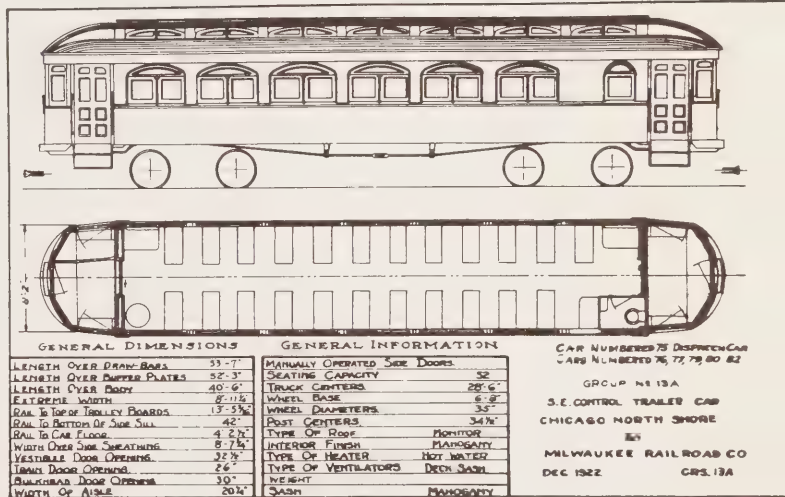 GENERAL DIMENSIONS
LENGTH OVER DRAW-BARS 53'-7"
LENGTH OVER BUFFER PLATES 52'-3"
LENGTH OVER BODY 40'-6"
EXTREME WIDTH 8'-11¼"
RAIL TO TOP OF TROLLEY BOARDS 13'-5⅜"
RAIL TO BOTTOM OF SIDE SILL 42"
RAIL TO CAR FLOOR 4'-2½"
WIDTH OVER SIDE SHEATHING 8'-7¼"
VESTIBULE DOOR OPENING 32½"
TRAIN DOOR OPENING 26"
BULKHEAD DOOR OPENING 30"
WIDTH OF AISLE 20¼"
GENERAL INFORMATION
MANUALLY OPERATED SIDE DOORS
SEATING CAPACITY 52
TRUCK CENTERS 28'-6"
WHEEL BASE
WHEEL DIAMETERS 35"
POST CENTERS 34½"
TYPE OF ROOF MONITOR
INTERIOR FINISH MAHOGANY
TYPE OF HEATER HOT WATER
TYPE OF VENTILATORS DECK SASH
WEIGHT
SASH MAHOGANY
CAR NUMBERED 75 DISPATCH CAR
CARS NUMBERED 76, 77, 79, 80 82
GROUP Nº 13A
S.E. CONTROL TRAILER CAR
CHICAGO NORTH SHORE
&
MILWAUKEE RAILROAD CO
DEC 1922 CRS. 13A